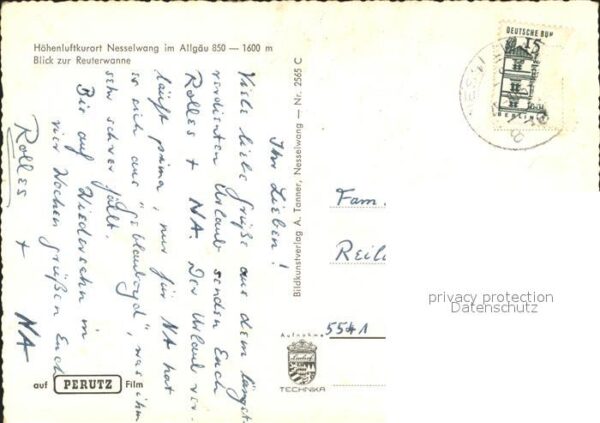 Höhenluftkurort Nesselwang im Allgäu 850 — 1600 m
Blick zur Reuterwanne
Ihr Lieben!
Viele liebe Grüße aus dem längst
verdienten Urlaub senden Euch
Rolles + NA. Der Urlaub ver-
läuft prima, nur für NA hat
es sich aus, was ihm
sehr schwer fällt.
Bis auf Wiedersehn in
vier Wochen grüßen Euch
Rolles + NA
Bildkunstverlag A. Tanner, Nesselwang — Nr. 2565 C
DEUTSCHE BUN
15
BERLIN
Fam.
Reil
5541
privacy protection
Datenschutz
Aufnahme
TECHNIKA
auf PERUTZ Film